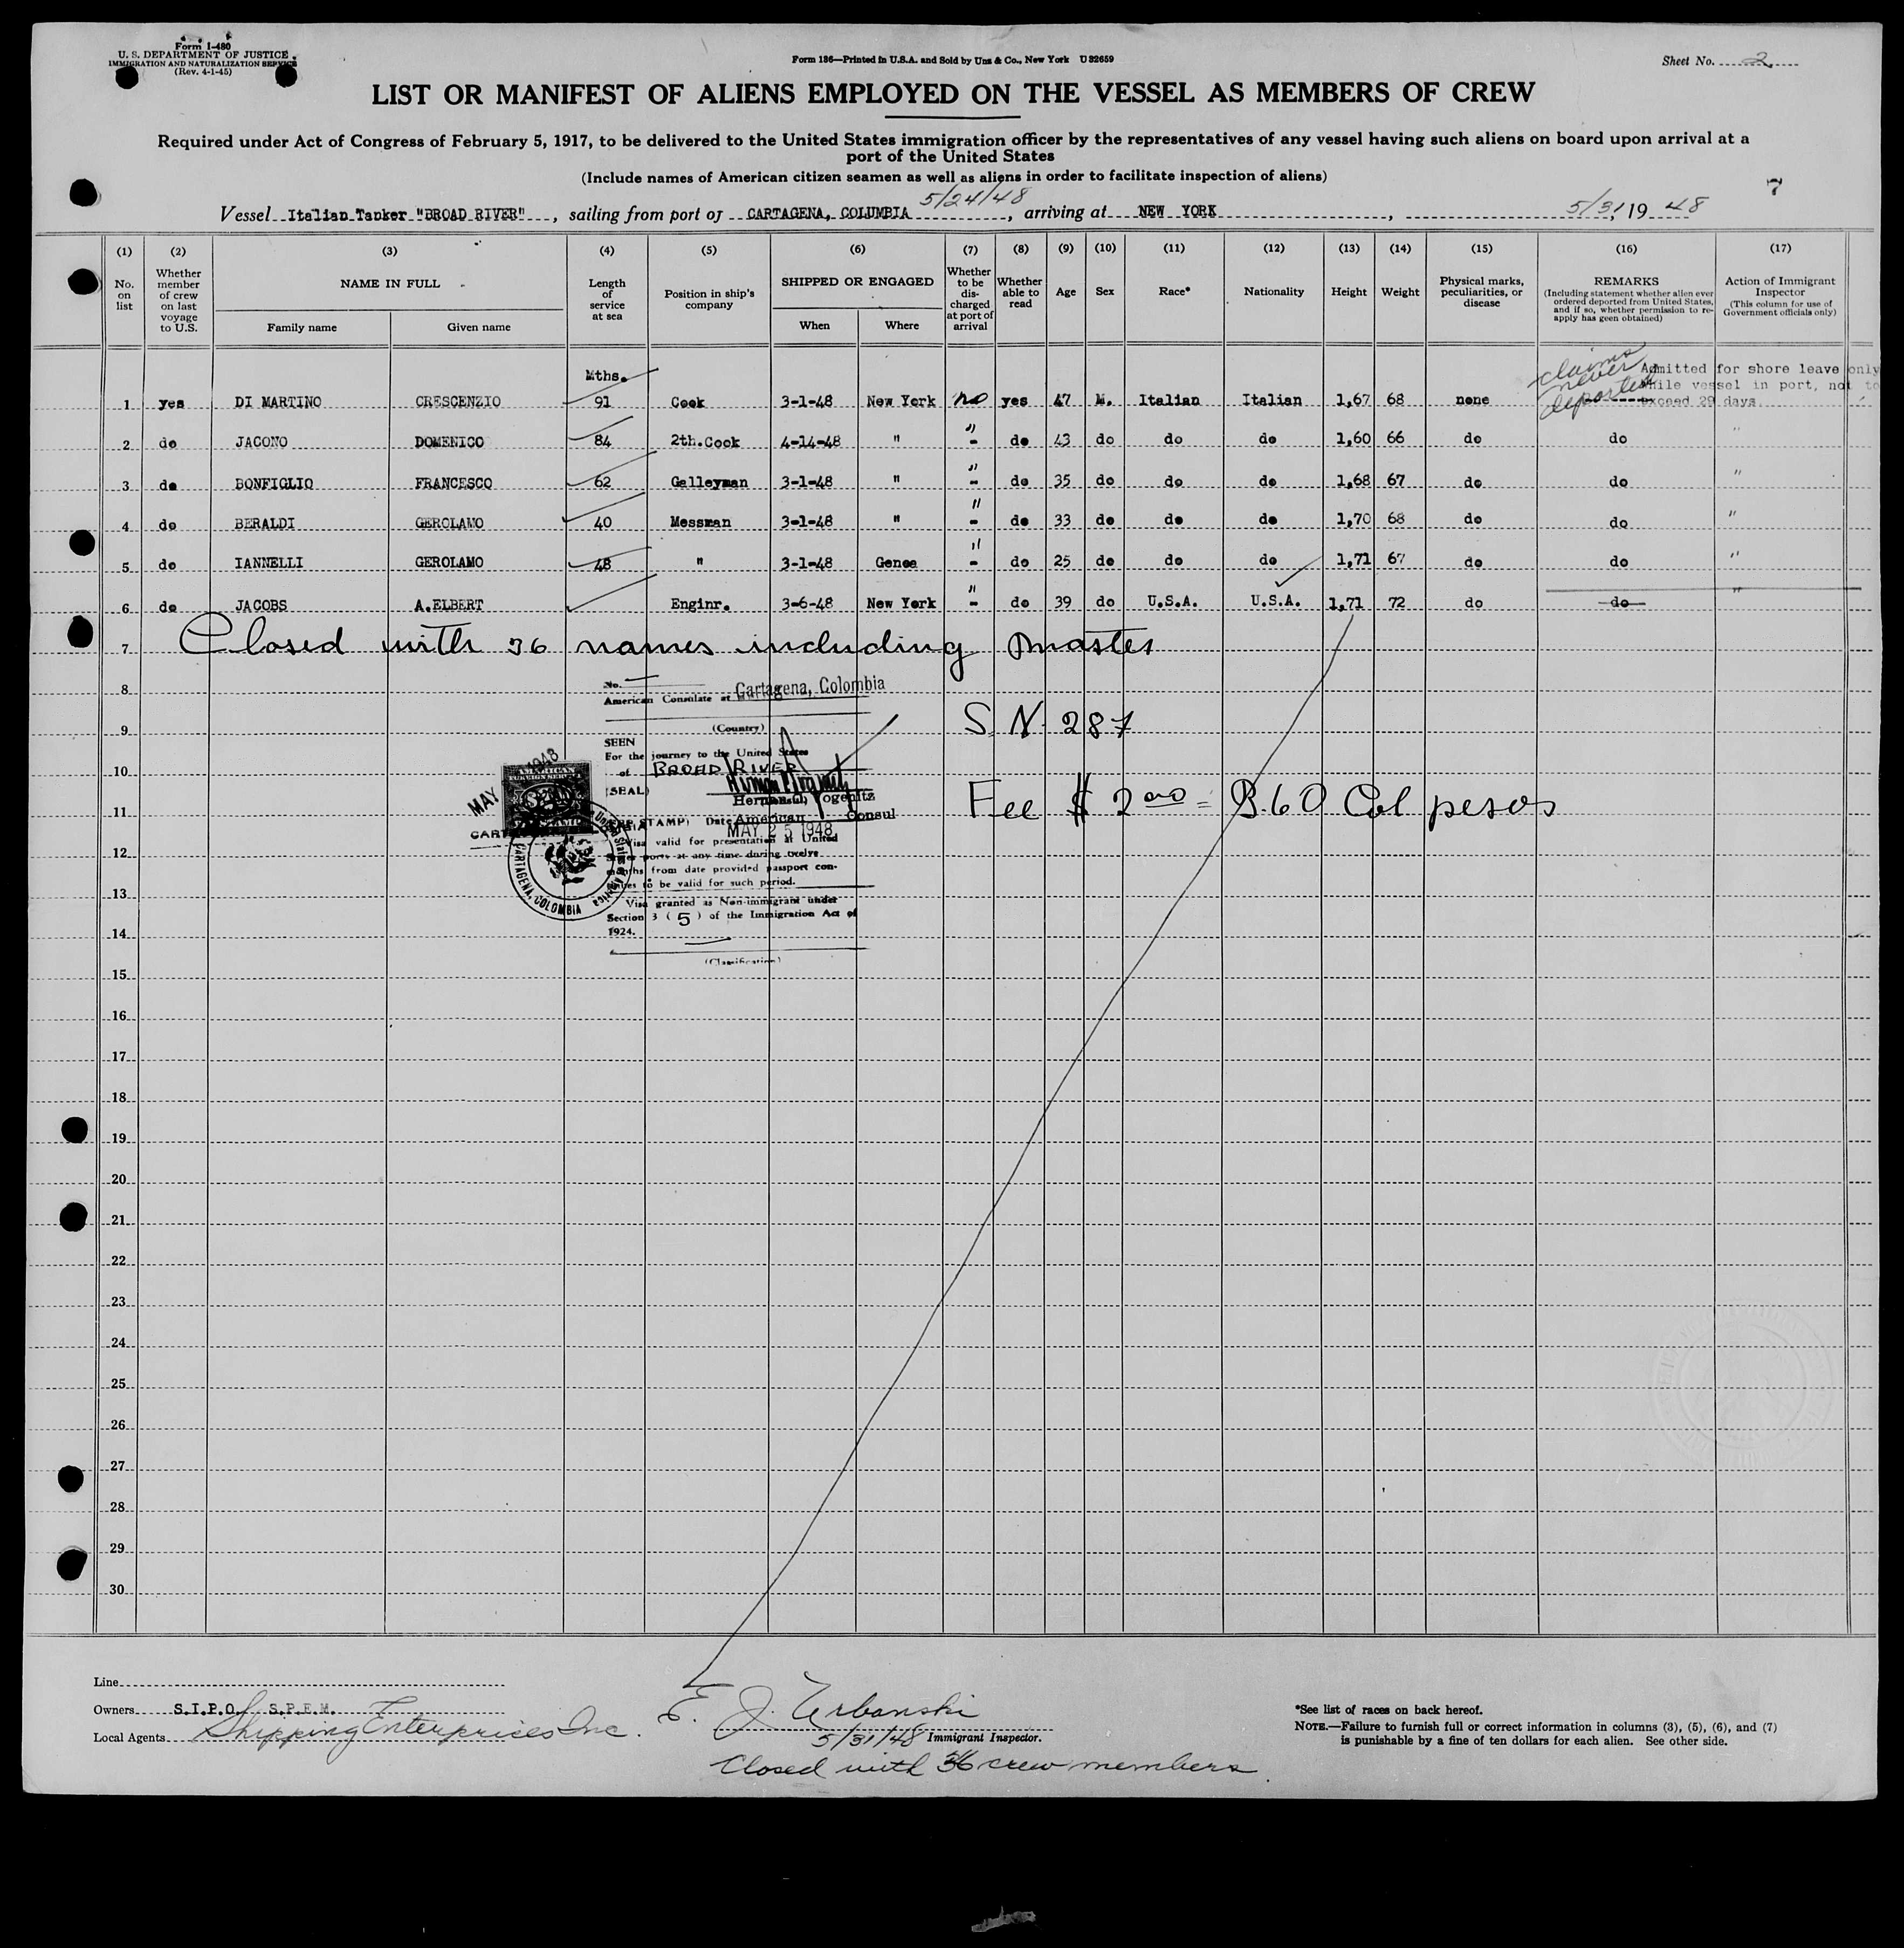 Form I-480
U. S. DEPARTMENT OF JUSTICE
IMMIGRATION AND NATURALIZATION SERVICE
(Rev. 4-1-45)
Form 186—Printed in U.S.A. and Sold by Unz & Co., New York U 32659
Sheet No. 2
LIST OR MANIFEST OF ALIENS EMPLOYED ON THE VESSEL AS MEMBERS OF CREW
Required under Act of Congress of February 5, 1917, to be delivered to the United States immigration officer by the representatives of any vessel having such aliens on board upon arrival at a
port of the United States
(Include names of American citizen seamen as well as aliens in order to facilitate inspection of aliens)
7
5/24/48
Vessel Italian Tanker "BROAD RIVER", sailing from port of CARTAGENA, COLUMBIA, arriving at NEW YORK, 5/31, 1948
(1) (2) (3) (4) (5) (6) (7) (8) (9) (10) (11) (12) (13) (14) (15) (16) (17)
No. on list
Whether member of crew on last voyage to U.S.
NAME IN FULL
Family name
Given name
Length of service at sea
Position in ship's company
SHIPPED OR ENGAGED
When
Where
Whether to be discharged at port of arrival
Whether able to read
Age
Sex
Race*
Nationality
Height
Weight
Physical marks, peculiarities, or disease
REMARKS
(Including statement whether alien ever ordered deported from United States, and if so, whether permission to re-apply has geen obtained)
Action of Immigrant Inspector
(This column for use of Government officials only)
Mths.
claims never deported
Admitted for shore leave only
while vessel in port, not to
exceed 29 days
1 yes DI MARTINO CRESCENZIO 91 Cook 3-1-48 New York no yes 47 M. Italian Italian 1,67 68 none
2 do JACONO DOMENICO 84 2th.Cook 4-14-48 " " - do 43 do do do 1,60 66 do do "
3 do BONFIGLIO FRANCESCO 62 Galleyman 3-1-48 " " - do 35 do do do 1,68 67 do do "
4 do BERALDI GEROLAMO 40 Messman 3-1-48 " " - do 33 do do do 1,70 68 do do "
5 do IANNELLI GEROLAMO 48 " 3-1-48 Genoa " - do 25 do do do 1,71 67 do do "
6 do JACOBS A.ELBERT Enginr. 3-6-48 New York " - do 39 do U.S.A. U.S.A. 1,71 72 do do "
7 Closed with 36 names including master
8
9 S N 287
10
11 Fee $ 2.00 = 3.60 Col pesos
12
13
14
15
16
17
18
19
20
21
22
23
24
25
26
27
28
29
30
No.
American Consulate at Cartagena, Colombia
(Country)
SEEN
For the journey to the United States
of BROAD RIVER
(SEAL)
American Consul
STAMP) Date MAY 25 1948
Visa valid for presentation at United
States ports at any time during twelve
months from date provided passport con-
tinues to be valid for such period.
Visa granted as Non-immigrant under
Section 3 (5) of the Immigration Act of
1924.
(Classification)
MAY 1948
AMERICAN
FOREIGN SERVICE
STAMP
CARTAGENA, COLOMBIA
Line
Owners S.I.P.O. S.P.E.M.
Local Agents Shipping Enterprises Inc.
E. J. Urbanski
5/31/48 Immigrant Inspector.
Closed with 36 crew members
*See list of races on back hereof.
NOTE.—Failure to furnish full or correct information in columns (3), (5), (6), and (7)
is punishable by a fine of ten dollars for each alien. See other side.